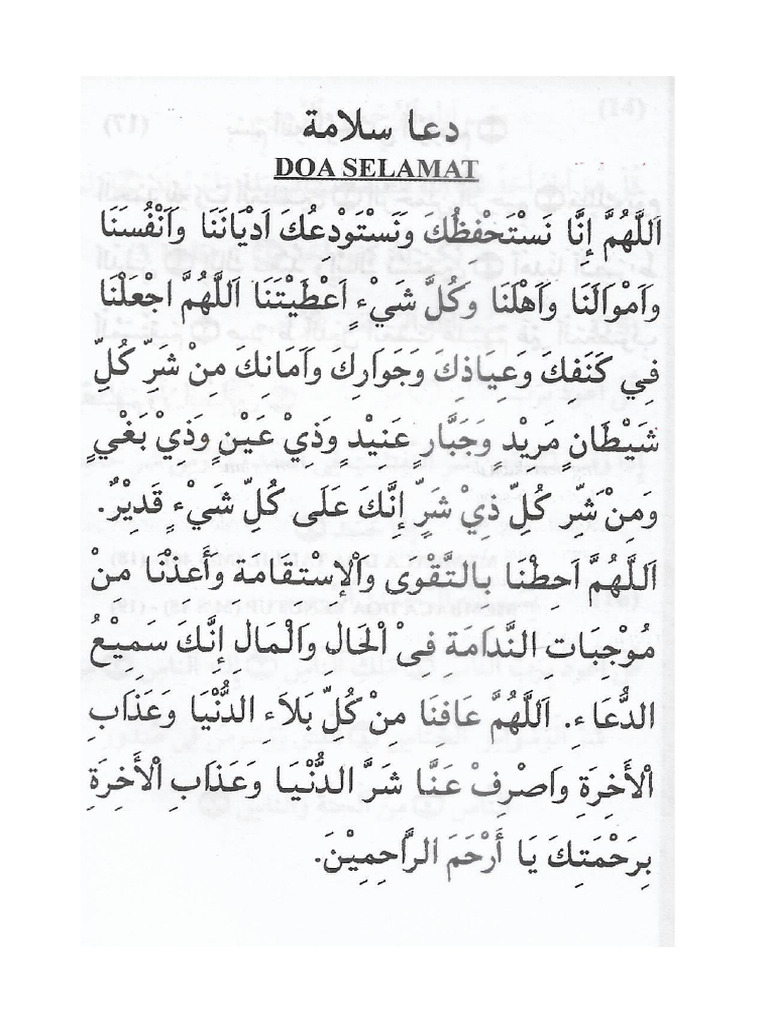 دعا سلامة
DOA SELAMAT
اَللَّهُمَّ إِنَّا نَسْتَحْفِظُكَ وَنَسْتَوْدِعُكَ اَدْيَانَنَا وَاَنْفُسَنَا
وَاَمْوَالَنَا وَاَهْلَنَا وَكُلَّ شَيْءٍ اَعْطَيْتَنَا اَللَّهُمَّ اجْعَلْنَا
فِي كَنَفِكَ وَعِيَاذِكَ وَجَوَارِكَ وَاَمَانِكَ مِنْ شَرِّ كُلِّ
شَيْطَانٍ مَرِيْدٍ وَجَبَّارٍ عَنِيْدٍ وَذِيْ عَيْنٍ وَذِيْ بَغْيٍ
وَمِنْ شَرِّ كُلِّ ذِيْ شَرٍّ إِنَّكَ عَلَى كُلِّ شَيْءٍ قَدِيْرٌ.
اَللَّهُمَّ اَحِطْنَا بِالتَّقْوَى وَالْإِسْتِقَامَةِ وَأَعِذْنَا مِنْ
مُوْجِبَاتِ النَّدَامَةِ فِىْ الْحَالِ وَالْمَالِ إِنَّكَ سَمِيْعُ
الدُّعَاءِ. اَللَّهُمَّ عَافِنَا مِنْ كُلِّ بَلَاءِ الدُّنْيَا وَعَذَابِ
الْأَخِرَةِ وَاصْرِفْ عَنَّا شَرَّ الدُّنْيَا وَعَذَابِ الْأَخِرَةِ
بِرَحْمَتِكَ يَا أَرْحَمَ الرَّاحِمِيْنَ.